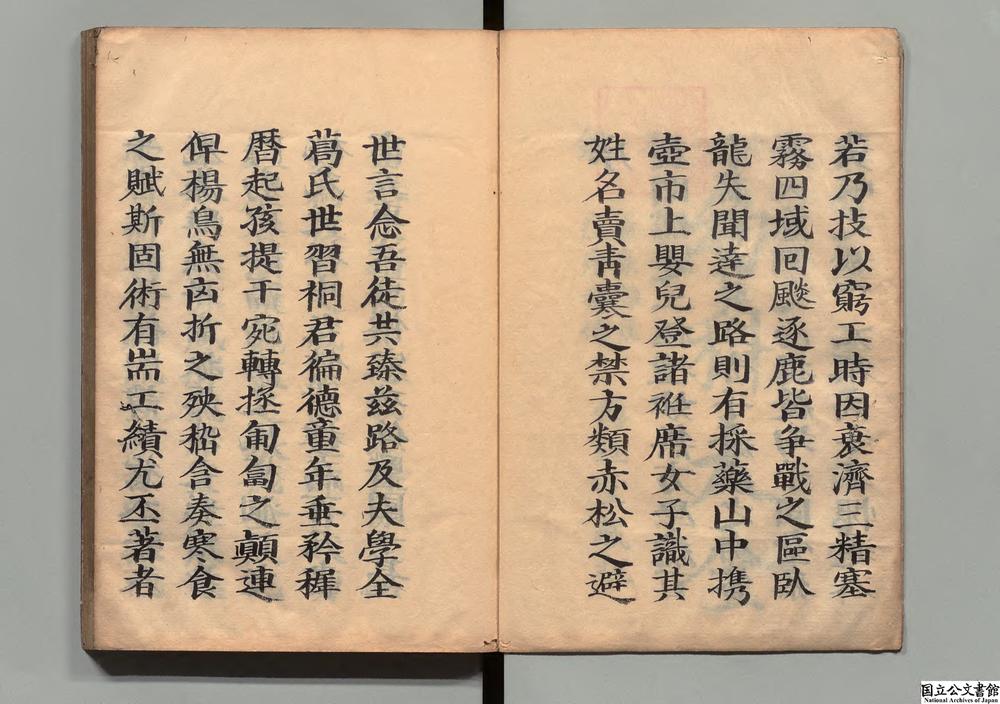 若乃技以窮工時因衰濟三精塞
霧四域回飈逐鹿皆争戰之區臥
龍失聞達之路則有採藥山中携
壺市上嬰兒登諸袵席女子識其
姓名賣青囊之禁方類赤松之避
世言念吾徒共臻茲路及夫學全
葛氏世習桐君徧德童年垂矜穉
暦起孩提干宛轉拯匍匐之顛連
俾楊烏無凶折之殃嵇含奏寒食
之賦斯固術有耑工績尤丕著者
国立公文書館
National Archives of Japan